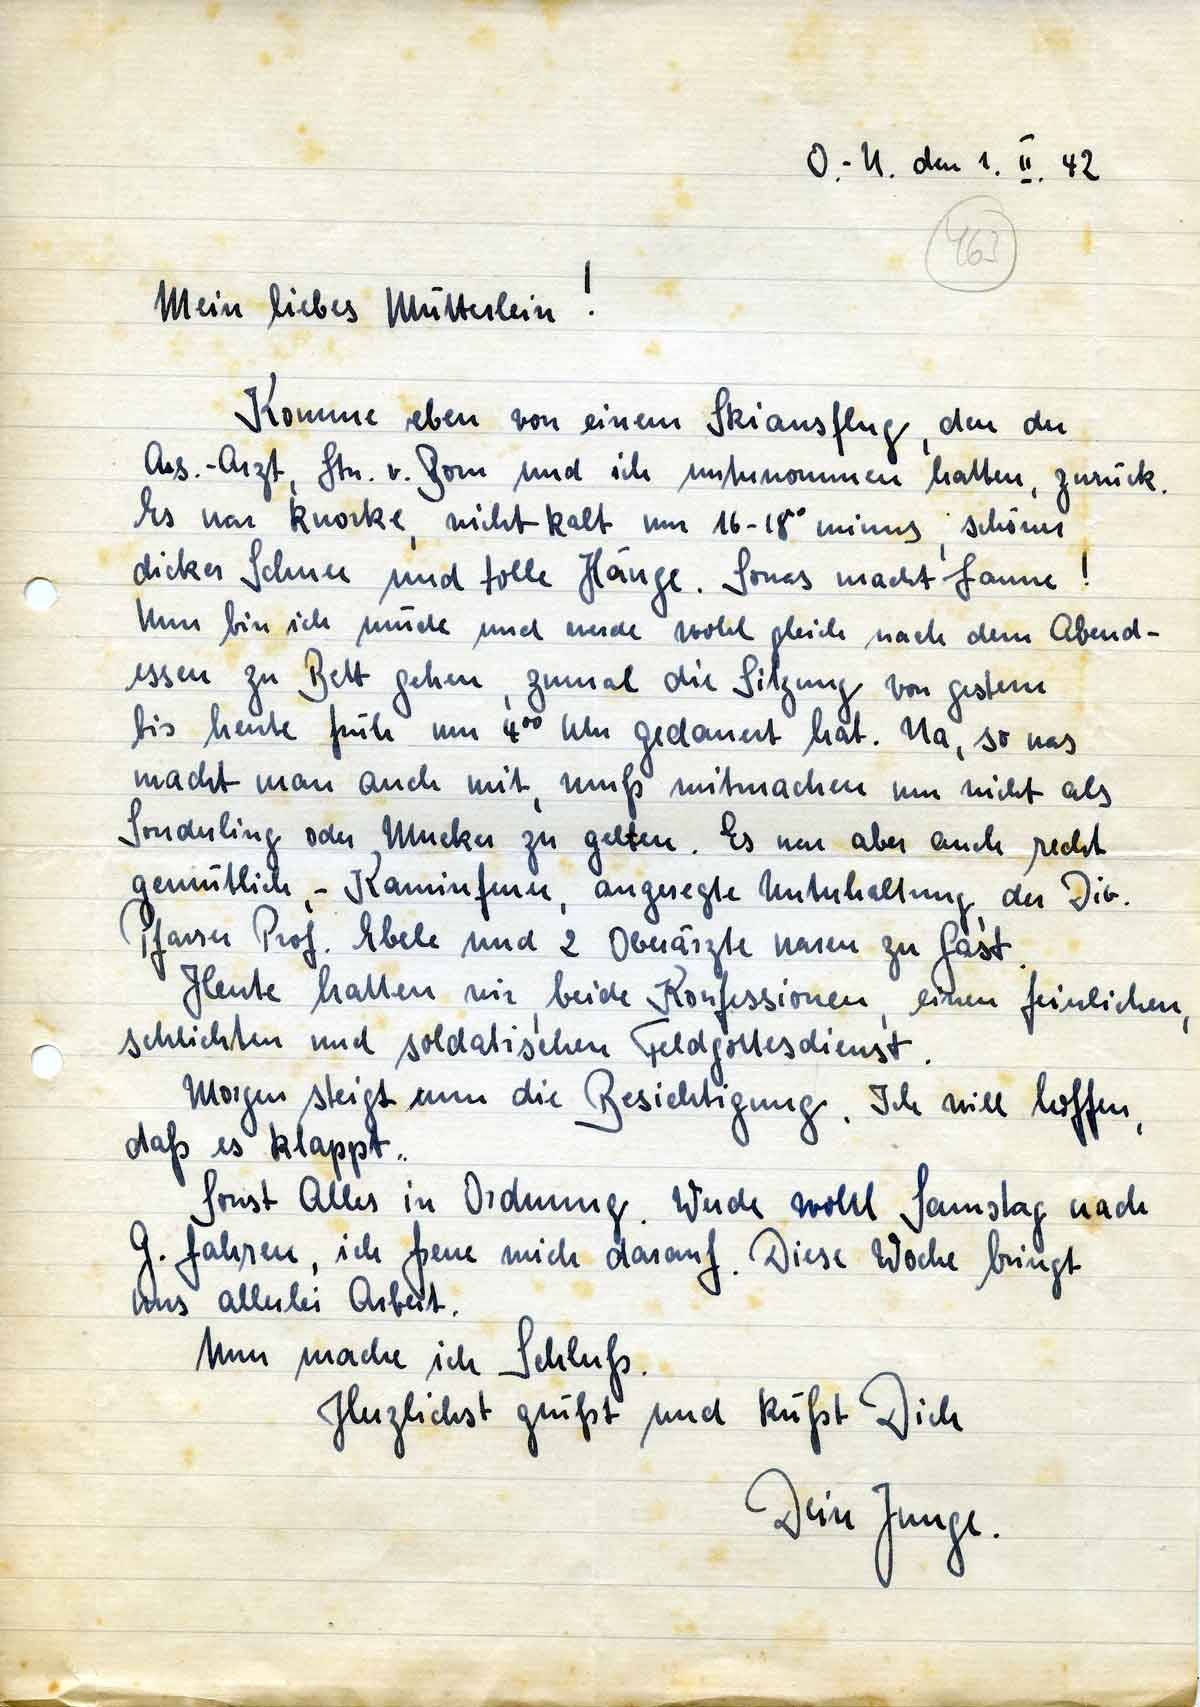 O.-U. den 1. II. 42
463
Mein liebes Mütterlein!
Komme eben von einem Skiausflug, den der
Ass.-Arzt, Stn. v. Born und ich unternommen hatten, zurück.
Es war knorke, nicht kalt nur 16-18° minus, schöner
dicker Schnee und tolle Hänge. Sowas macht Laune!
Nun bin ich müde und werde wohl gleich nach dem Abend-
essen zu Bett gehen, zumal die Sitzung von gestern
bis heute früh um 4⁰⁰ Uhr gedauert hat. Na, so was
macht man auch mit, muß mitmachen um nicht als
Sonderling oder Mucker zu gelten. Es war aber auch recht
gemütlich, - Kaminfeuer, angeregte Unterhaltung, der Div.
Pfarrer Prof. Ebele und 2 Oberärzte waren zu Gast.
Heute hatten wir, beide Konfessionen, einen feierlichen,
schlichten und soldatischen Feldgottesdienst.
Morgen steigt nun die Besichtigung. Ich will hoffen,
daß es klappt.
Sonst Alles in Ordnung. Werde wohl Samstag nach
G. fahren, ich freue mich darauf. Diese Woche bringt
uns allerlei Arbeit.
Nun mache ich Schluß.
Herzlichst grüßt und küßt Dich
Dein Junge.